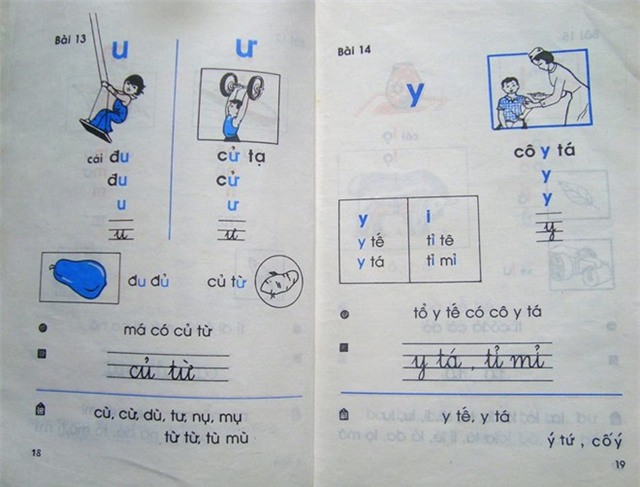 Bài 13
u
ư
cái đu
đu
u
u
cử tạ
cử
ư
ư
đu đủ
củ từ
má có củ từ
củ từ
cù, cừ, dù, tư, nụ, mụ
từ từ, tù mù
18
Bài 14
y
cô y tá
y
y
y
y
y tế
y tá
i
tỉ tê
tỉ mỉ
tổ y tế có cô y tá
y tá, tỉ mỉ
y tế, y tá
ý tứ, cố ý
19